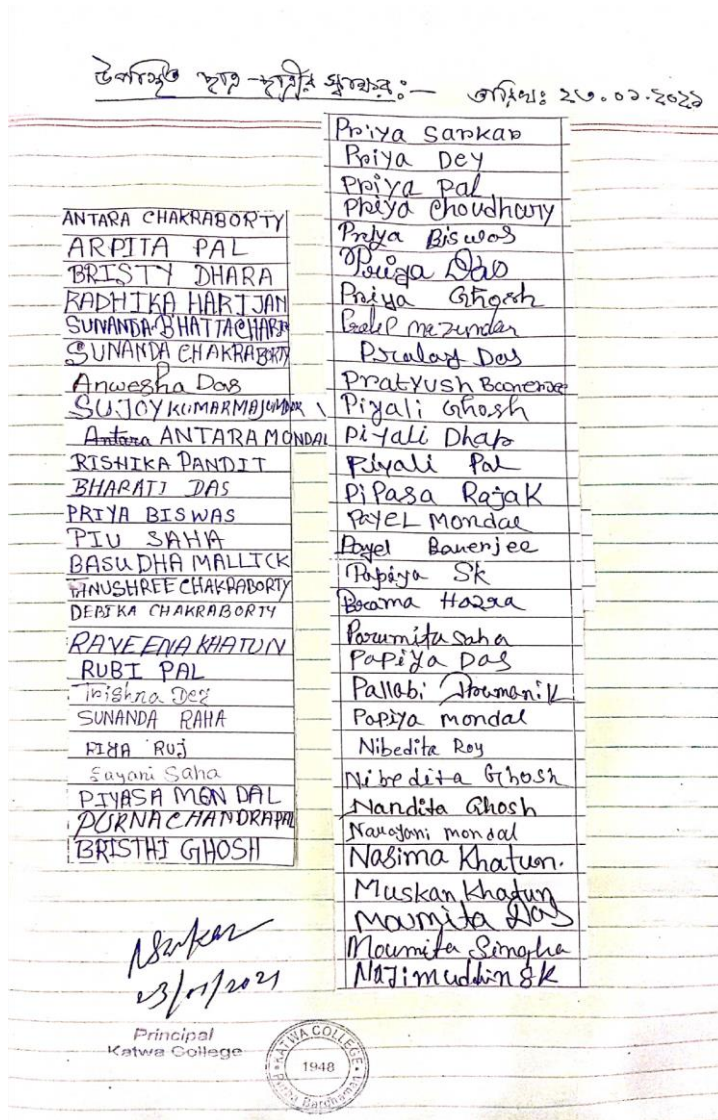 উপস্থিত ছাত্র-ছাত্রীর স্বাক্ষর:— তারিখঃ ২৩.০১.২০২১
ANTARA CHAKRABORTY
ARPITA PAL
BRISTY DHARA
RADHIKA HARIJAN
SUNANDA BHATTACHARJ
SUNANDA CHAKRABORTY
Anwesha Das
SUJOY KUMAR MAJUMDAR
Antara ANTARA MONDAL
RISHIKA PANDIT
BHARATI DAS
PRIYA BISWAS
PIU SAHA
BASUDHA MALLICK
ANUSHREE CHAKRABORTY
DEBIKA CHAKRABORTY
RAVEENA KHATUN
RUBI PAL
Trishna Dey
SUNANDA RAHA
PIYA RUJ
Sayani Saha
PIYASA MONDAL
PURNACHANDRA PAL
BRISTHI GHOSH
Priya Sarkar
Priya Dey
Priya Pal
Priya Choudhury
Priya Biswas
Priya Das
Priya Ghosh
Mazumdar
Pralay Das
Pratyush Banerjee
Piyali Ghosh
Piyali Dhar
Piyali Pal
Pipasa Rajak
PAYEL Mondal
Payel Banerjee
Papiya Sk
Hazra
Parumita Saha
Papiya Das
Pallabi Pramanik
Papiya mondal
Nibedita Roy
Nibedita Ghosh
Nandita Ghosh
Narayani mondal
Nasima Khatun.
Muskan Khatun
Moumita Das
Moumita Singha
Najimuddin SK
23/01/2021
Principal
Katwa College
KATWA COLLEGE
1948
Purba Bardhaman